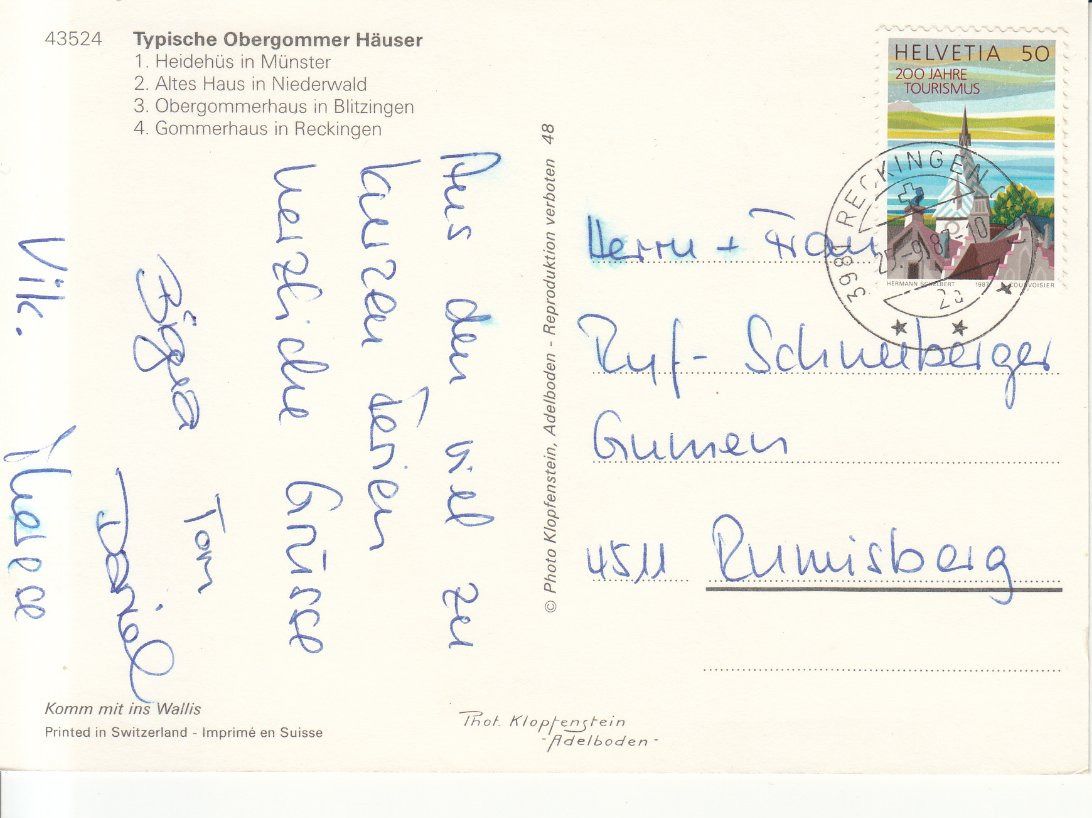 43524 Typische Obergommer Häuser
1. Heidehüs in Münster
2. Altes Haus in Niederwald
3. Obergommerhaus in Blitzingen
4. Gommerhaus in Reckingen
Aus den viel zu
kurzen Ferien
herzliche Grüsse
Tom
Daniel
Vik.
Komm mit ins Wallis
Printed in Switzerland - Imprimé en Suisse
© Photo Klopfenstein, Adelboden - Reproduktion verboten 48
Phot. Klopfenstein
-Adelboden-
HELVETIA 50
200 JAHRE
TOURISMUS
HERMANN SCHELBERT 1987 COURVOISIER
3981 RECKINGEN
Herrn + Frau
Ryf - Schneeberger
Gummen
4511 Rumisberg